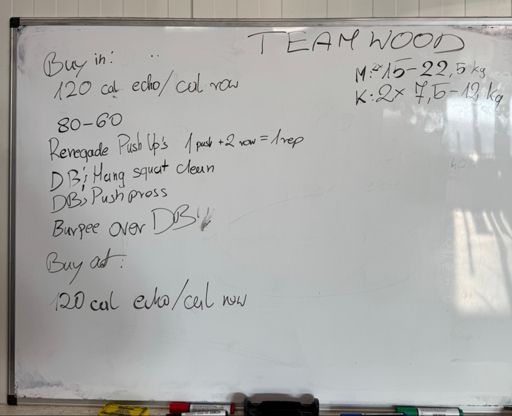 TEAM WOOD
Buy in:
120 cal echo/cal row
M: 15-22,5 kg
K: 2x 7,5-12 kg
80-60
Renegade Push Up's 1 push + 2 row = 1 rep
DB; Hang squat clean
DB; Push press
Burpee over DB's
Buy out:
120 cal echo/cal row